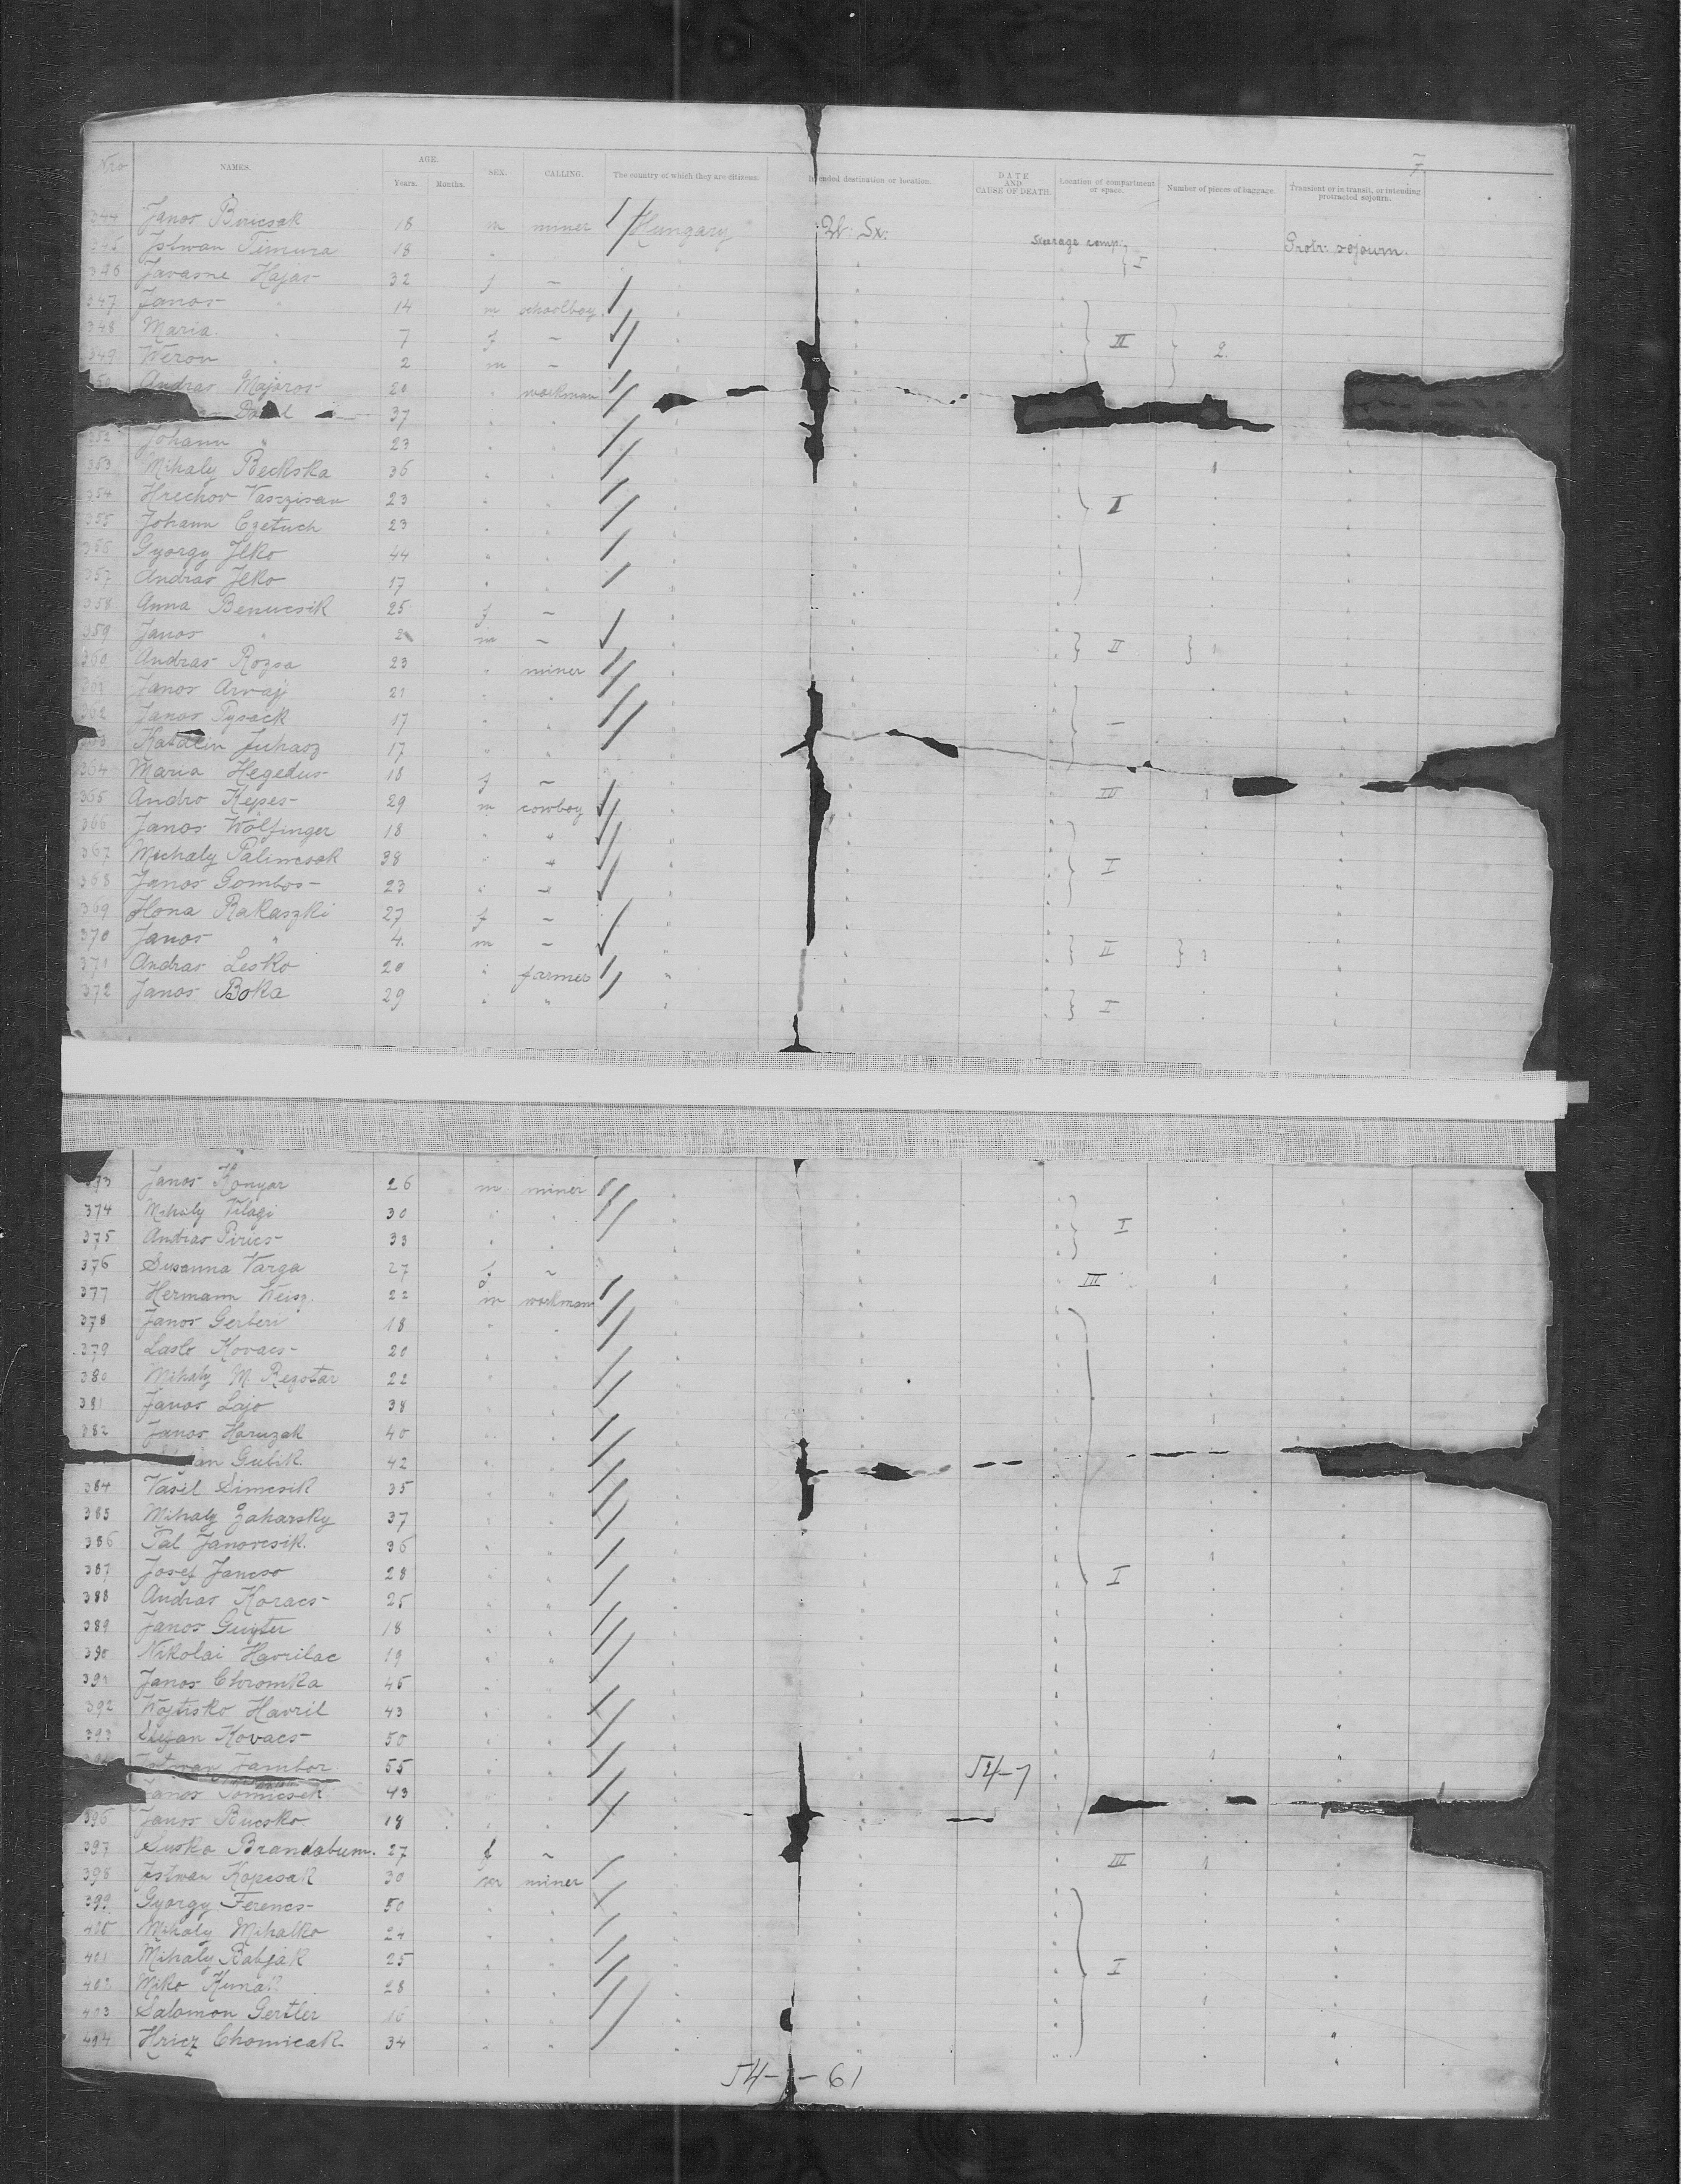 7
Nro NAMES. AGE. Years. Months. SEX. CALLING. The country of which they are citizens. Intended destination or location. DATE AND CAUSE OF DEATH. Location of compartment or space. Number of pieces of baggage. Transient or in transit, or intending protracted sojourn.
344 Janos 18 m miner Hungary Steerage comp. I Protr: sojourn.
345 Istwan Timura 18 "
346 Hajas 32 f –
347 Janos " 14 m schoolboy
348 Maria " 7 f – II 2
349 Weron " 2 m –
Andras Majoros 20 " workman
37
352 Johann " 23
353 Mihaly Beckska 36 1
354 Hrechor 23 I
355 Johann Czetuch 23
356 Gyorgy Ilko 44
357 Andras Ilko 17
358 Anna Benucsik 25 f –
359 Janos " 2 m – II 1
360 Andras Rozsa 23 " miner
361 Janos Arvay 21
362 Janos 17 –
363 Katalin Juhasz 17
364 Maria Hegedus 18 f – III 1
365 Andro Kepes 29 m cowboy
366 Janos Wolfinger 18 " "
367 Michaly Palincsak 38 I
368 Janos Gombos 23
369 Ilona Rakaszki 27 f –
370 Janos " 4. m – II 1
371 Andras Lesko 20 " farmer
372 Janos Boka 29 " " I
373 Janos Konyar 26 m miner
374 Mihaly Vilagi 30 I
375 Andras Pirics 33
376 Susanna Varga 27 f – III 1
377 Hermann Weisz. 22 m workman
378 Janos Gerberi 18
379 Laslo Kovacs 20
380 Mihaly M. Rezotar 22
381 Janos Lajo 38 1
382 Janos Haruzak 40
an Gubik 42
384 Vasil Simcsik 35
385 Mihaly Zaharsky 37
386 Pal Janovcsik. 36 1
387 Josef Jancso 28 I
388 Andras Koracs 25
389 Janos 18
390 Nikolai Havrilac 19
391 Janos Chromka 45
392 Wojtisko Havril 43
393 Stefan Kovacs 50
Istwan Jambor 55 54-7 1
Janos 43
396 Janos Bucsko 18
397 Suska Brandabum. 27 f – III 1
398 Istwan Kopcsak 30 m miner
399 Gyorgy Ferencs 50
400 Mihaly Mihalko 24
401 Mihaly Babjak 25 I
402 Miko 28
403 Salomon Gertler 16 1
404 Hricz Chomicak 34
54- - 61